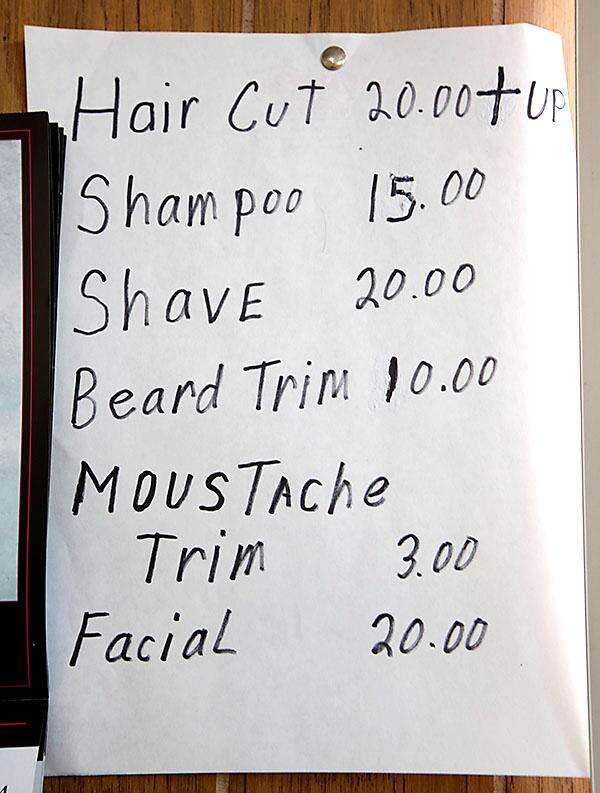 Hair Cut 20.00 + UP
Shampoo 15.00
ShavE 20.00
Beard Trim 10.00
MOUSTAche
Trim 3.00
FaciaL 20.00